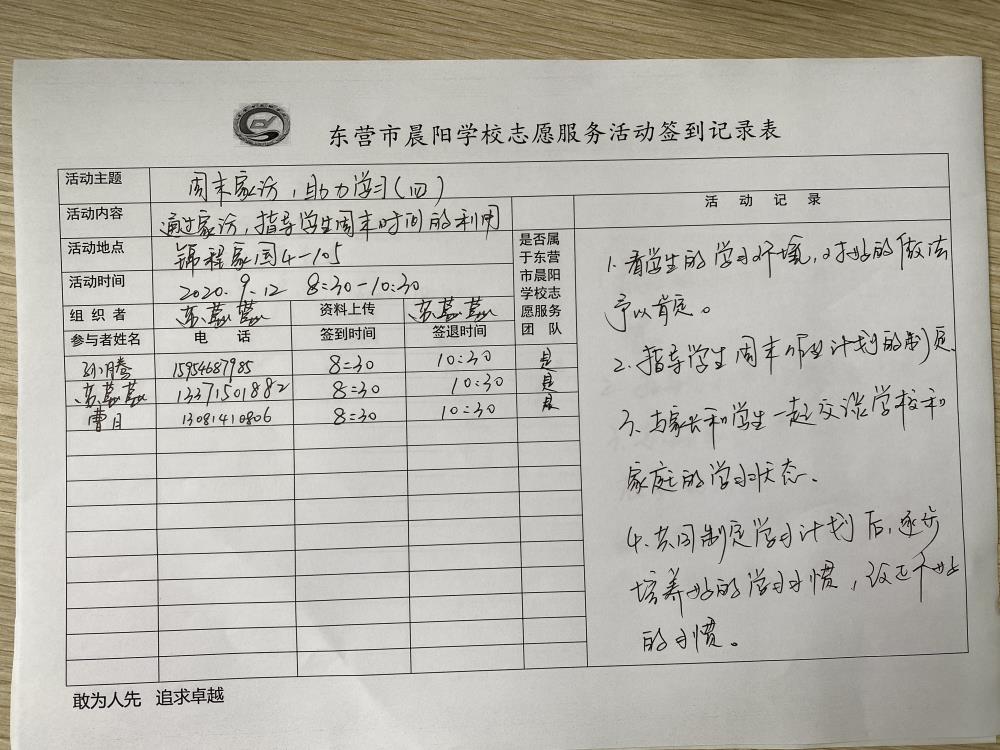 东营市晨阳学校志愿服务活动签到记录表
活动主题 周末家访，助力学习（四）
活动内容 通过家访，指导学生周末时间的利用
活动地点 锦程家园4-105
活动时间 2020.9.12 8:30-10:30
组织者 苏蕊蕊 资料上传 苏蕊蕊
参与者姓名 电话 签到时间 签退时间 是否属于东营市晨阳学校志愿服务团队
孙腾 15954687985 8:30 10:30 是
苏蕊蕊 13371501882 8:30 10:30 是
曹月 13081410806 8:30 10:30 是
活动记录
1.看学生的学习环境，对好的做法
予以肯定。
2.指导学生周末作业计划的制定
3、与家长和学生一起交谈学校和
家庭的学习状态、
4、共同制定学习计划后，逐步
培养好的学习习惯，改正不好
的习惯。
敢为人先 追求卓越